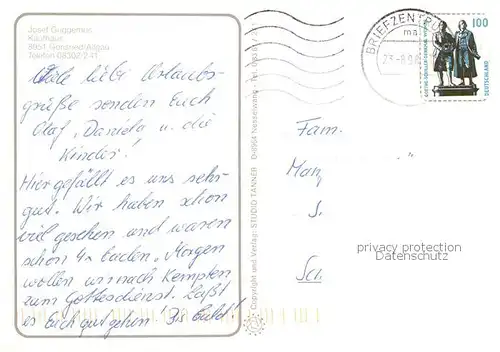 Josef Guggemos
Kaufhaus
8951 Görisried/Allgäu
Telefon 08302/2 41
Viele liebe Urlaubs-
grüße senden Euch
Olaf, Daniela u. die
Kinder!
Hier gefällt es uns sehr
gut. Wir haben schon
viel gesehen und waren
schon 4x baden. Morgen
wollen wir nach Kempten
zum Gottesdienst. Laßt
es Euch gut gehen! Bis bald!
Copyright und Verlag: STUDIO TANNER
Nesselwang
BRIEFZENTRUM
100
DEUTSCHLAND
Fam.
privacy protection
Datenschutz